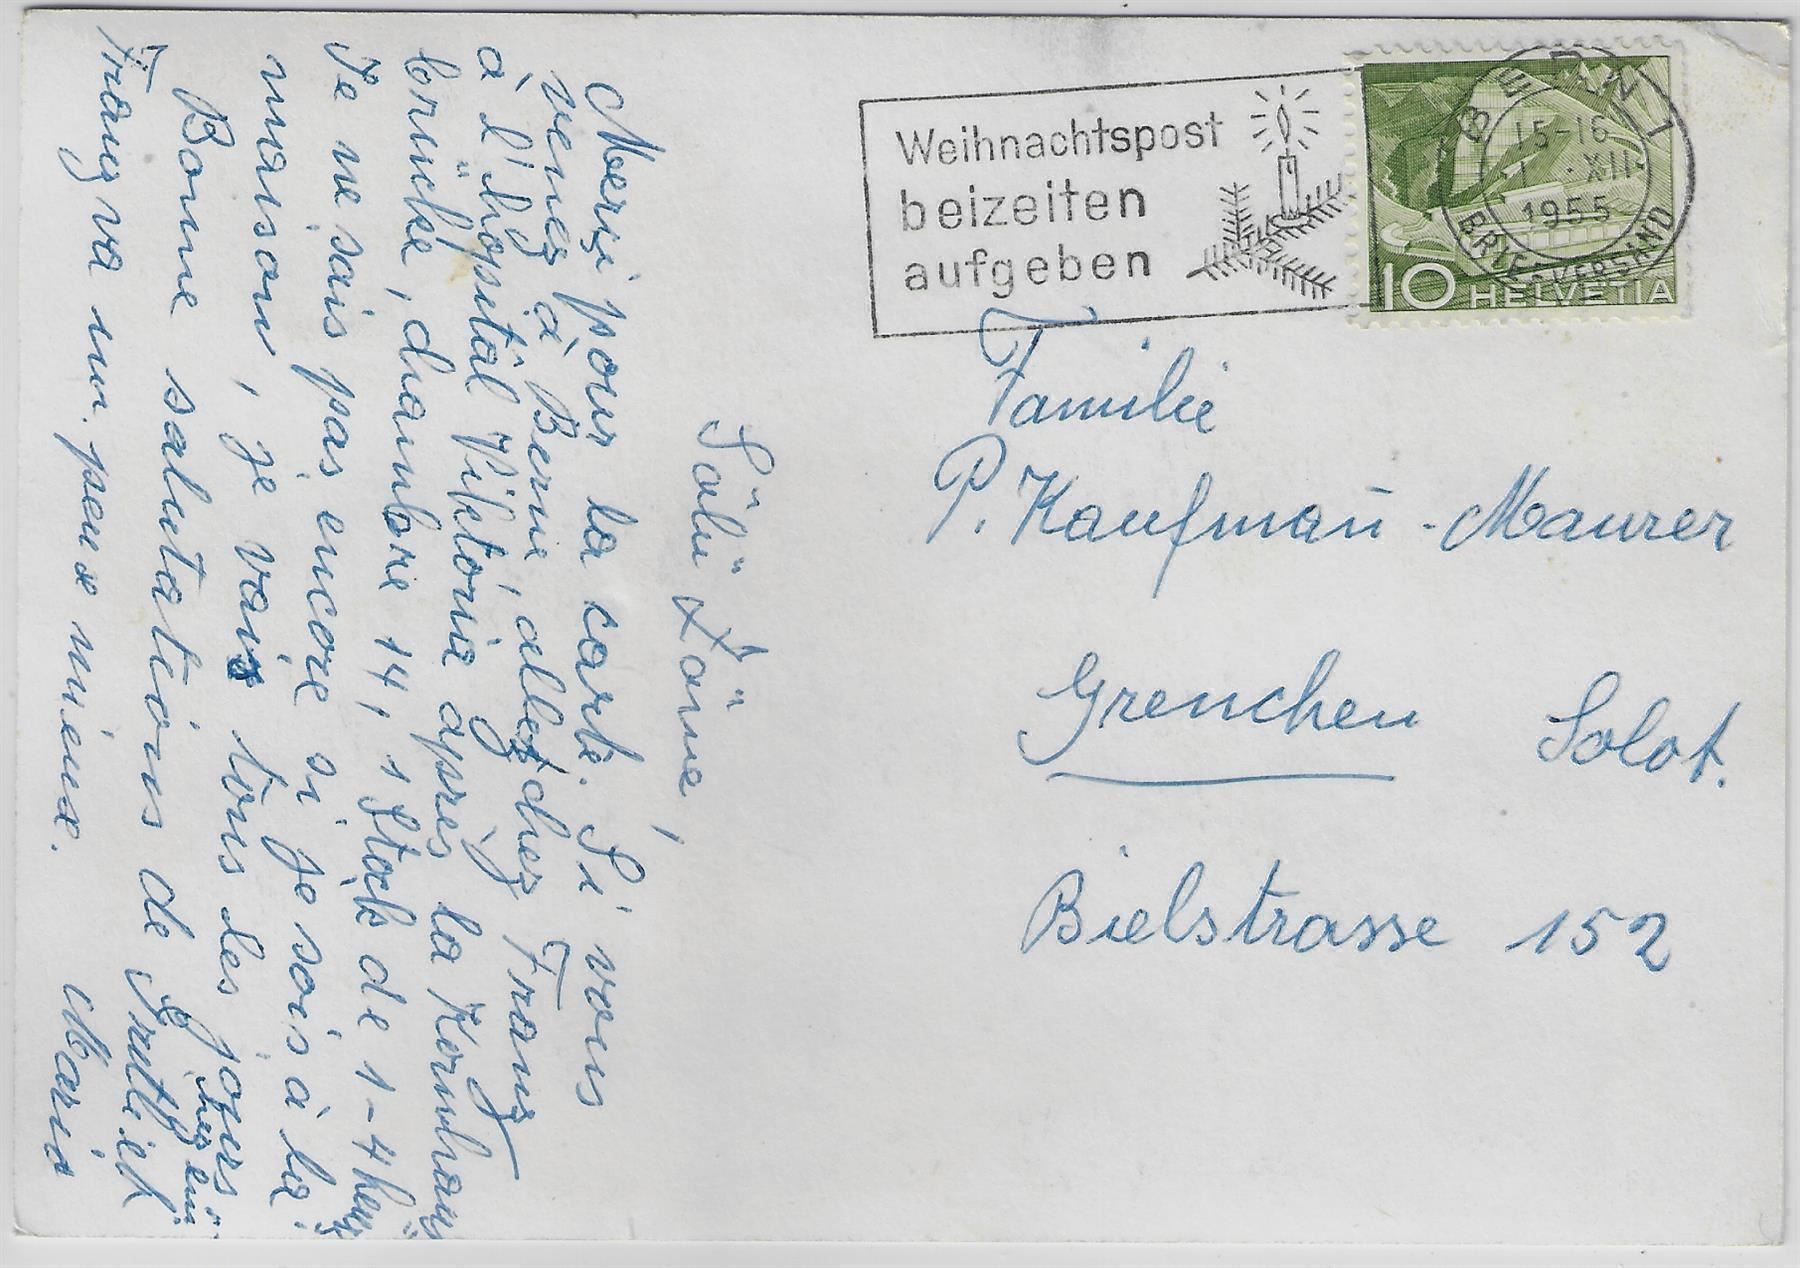 Weihnachtspost
beizeiten
aufgeben
BERN 1
15-16
XII
1955
BRIEFVERSAND
10 HELVETIA
Familie
P. Kaufmañ - Maurer
Grenchen Solot.
Bielstrasse 152
Salü
Merçi pour la carte. Si vous
venez à Berne, allez chez Franz
à l'hôpital Viktoria après la Kornhaus
brücke, chambre 14, 1 Stock de 1-4 heu
Je ne sais pas encore si je sois à la
maison, je vais tous les jours
Bonne salutations de
Franz va un peux mieux. Maria